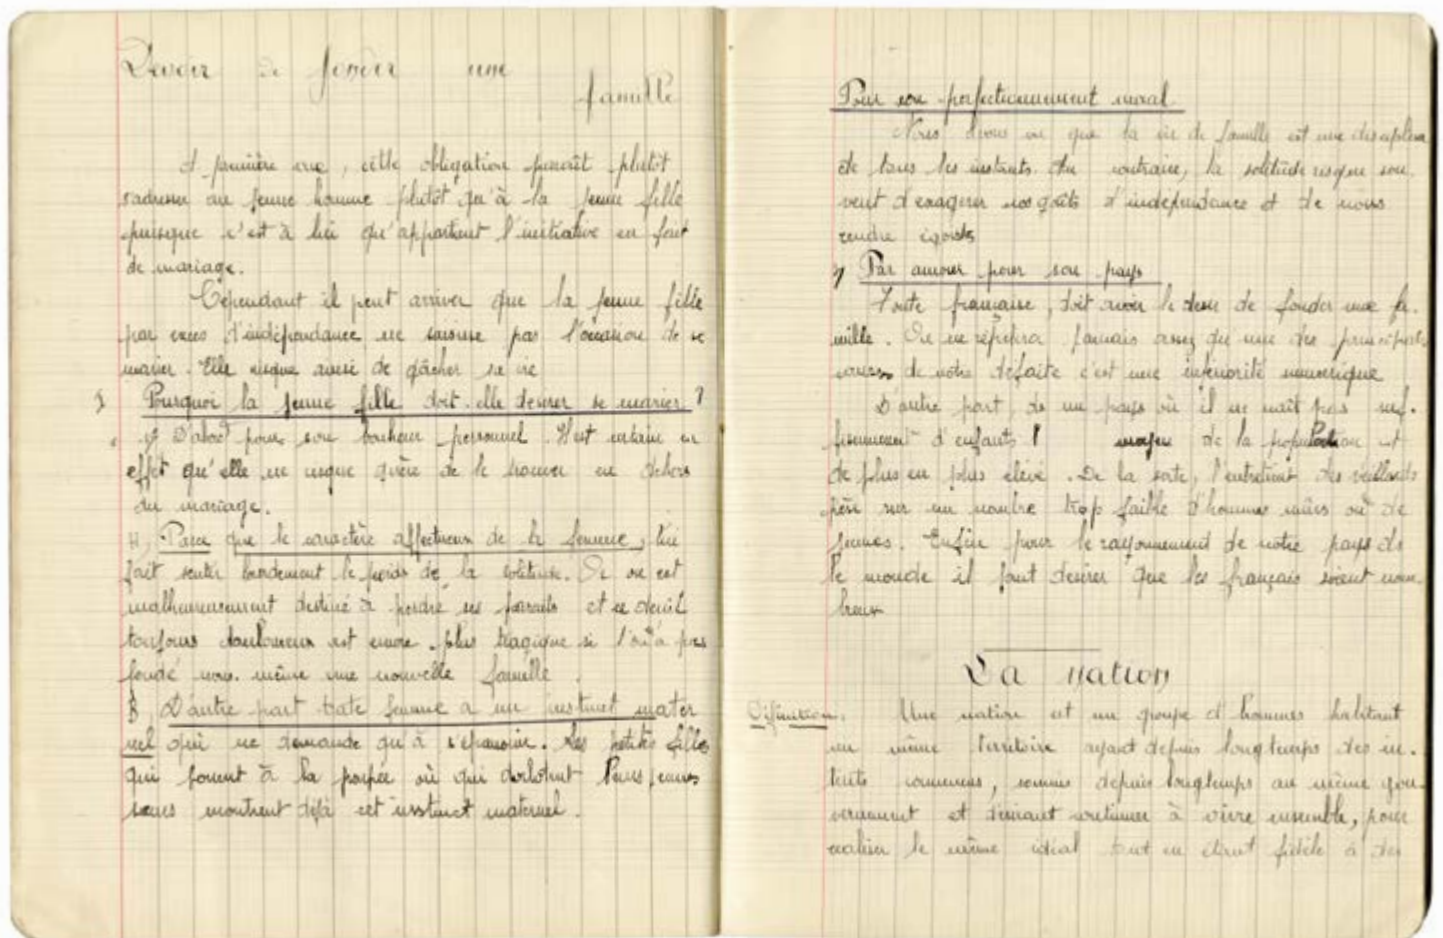 Devoir de fonder une
famille
A première vue, cette obligation paraît plutôt
s'adresser au jeune homme plutôt qu'à la jeune fille
puisque c'est à lui qu'appartient l'initiative en fait
de mariage.
Cependant il peut arriver que la jeune fille
par excès d'indépendance ne saisisse pas l'occasion de se
marier. Elle risque aussi de gâcher sa vie
Pourquoi la jeune fille doit-elle désirer se marier ?
D'abord pour son bonheur personnel. Il est certain en
effet qu'elle ne risque guère de le trouver en dehors
du mariage.
Parce que le caractère affectueux de la femme, lui
fait sentir lourdement le poids de la solitude. De on est
malheureusement destiné à perdre ses parents et ce deuil
toujours douloureux est encore plus tragique si l'on a pas
fondé nous-même une nouvelle famille
D'autre part toute femme a un instinct mater
nel qui ne demande qu'à s'épanouir. Les petites filles
qui jouent à la poupée où qui dorlotent leurs jeunes
sœurs montrent déjà cet instinct maternel.
Pour son perfectionnement moral
Nous avons vu que la vie de famille est une discipline
de tous les instants. Au contraire, la solitude risque sou
vent d'exagérer nos goûts d'indépendance et de nous
rendre égoïstes
Par amour pour son pays
Toute française, doit avoir le désir de fonder une fa.
mille. On ne répétera jamais assez qu'une des principales
causes de notre défaite c'est une infériorité numérique
D'autre part, ds un pays où il ne naît pas suf.
fisamment d'enfants l' moyen de la population est
de plus en plus élevé. De la sorte, l'entretient des vieillards
pèse sur un nombre trop faible d'hommes mûrs où de
jeunes. Enfin pour le rayonnement de notre pays ds
le monde il faut désirer que les français soient nom
breux
La nation
Définition. Une nation est un groupe d'hommes habitant
un même territoire ayant depuis longtemps des in.
térêts communs, soumis depuis longtemps au même gou
vernement et désirant continuer à vivre ensemble, pour
réaliser le même idéal tout en étant fidèle à des